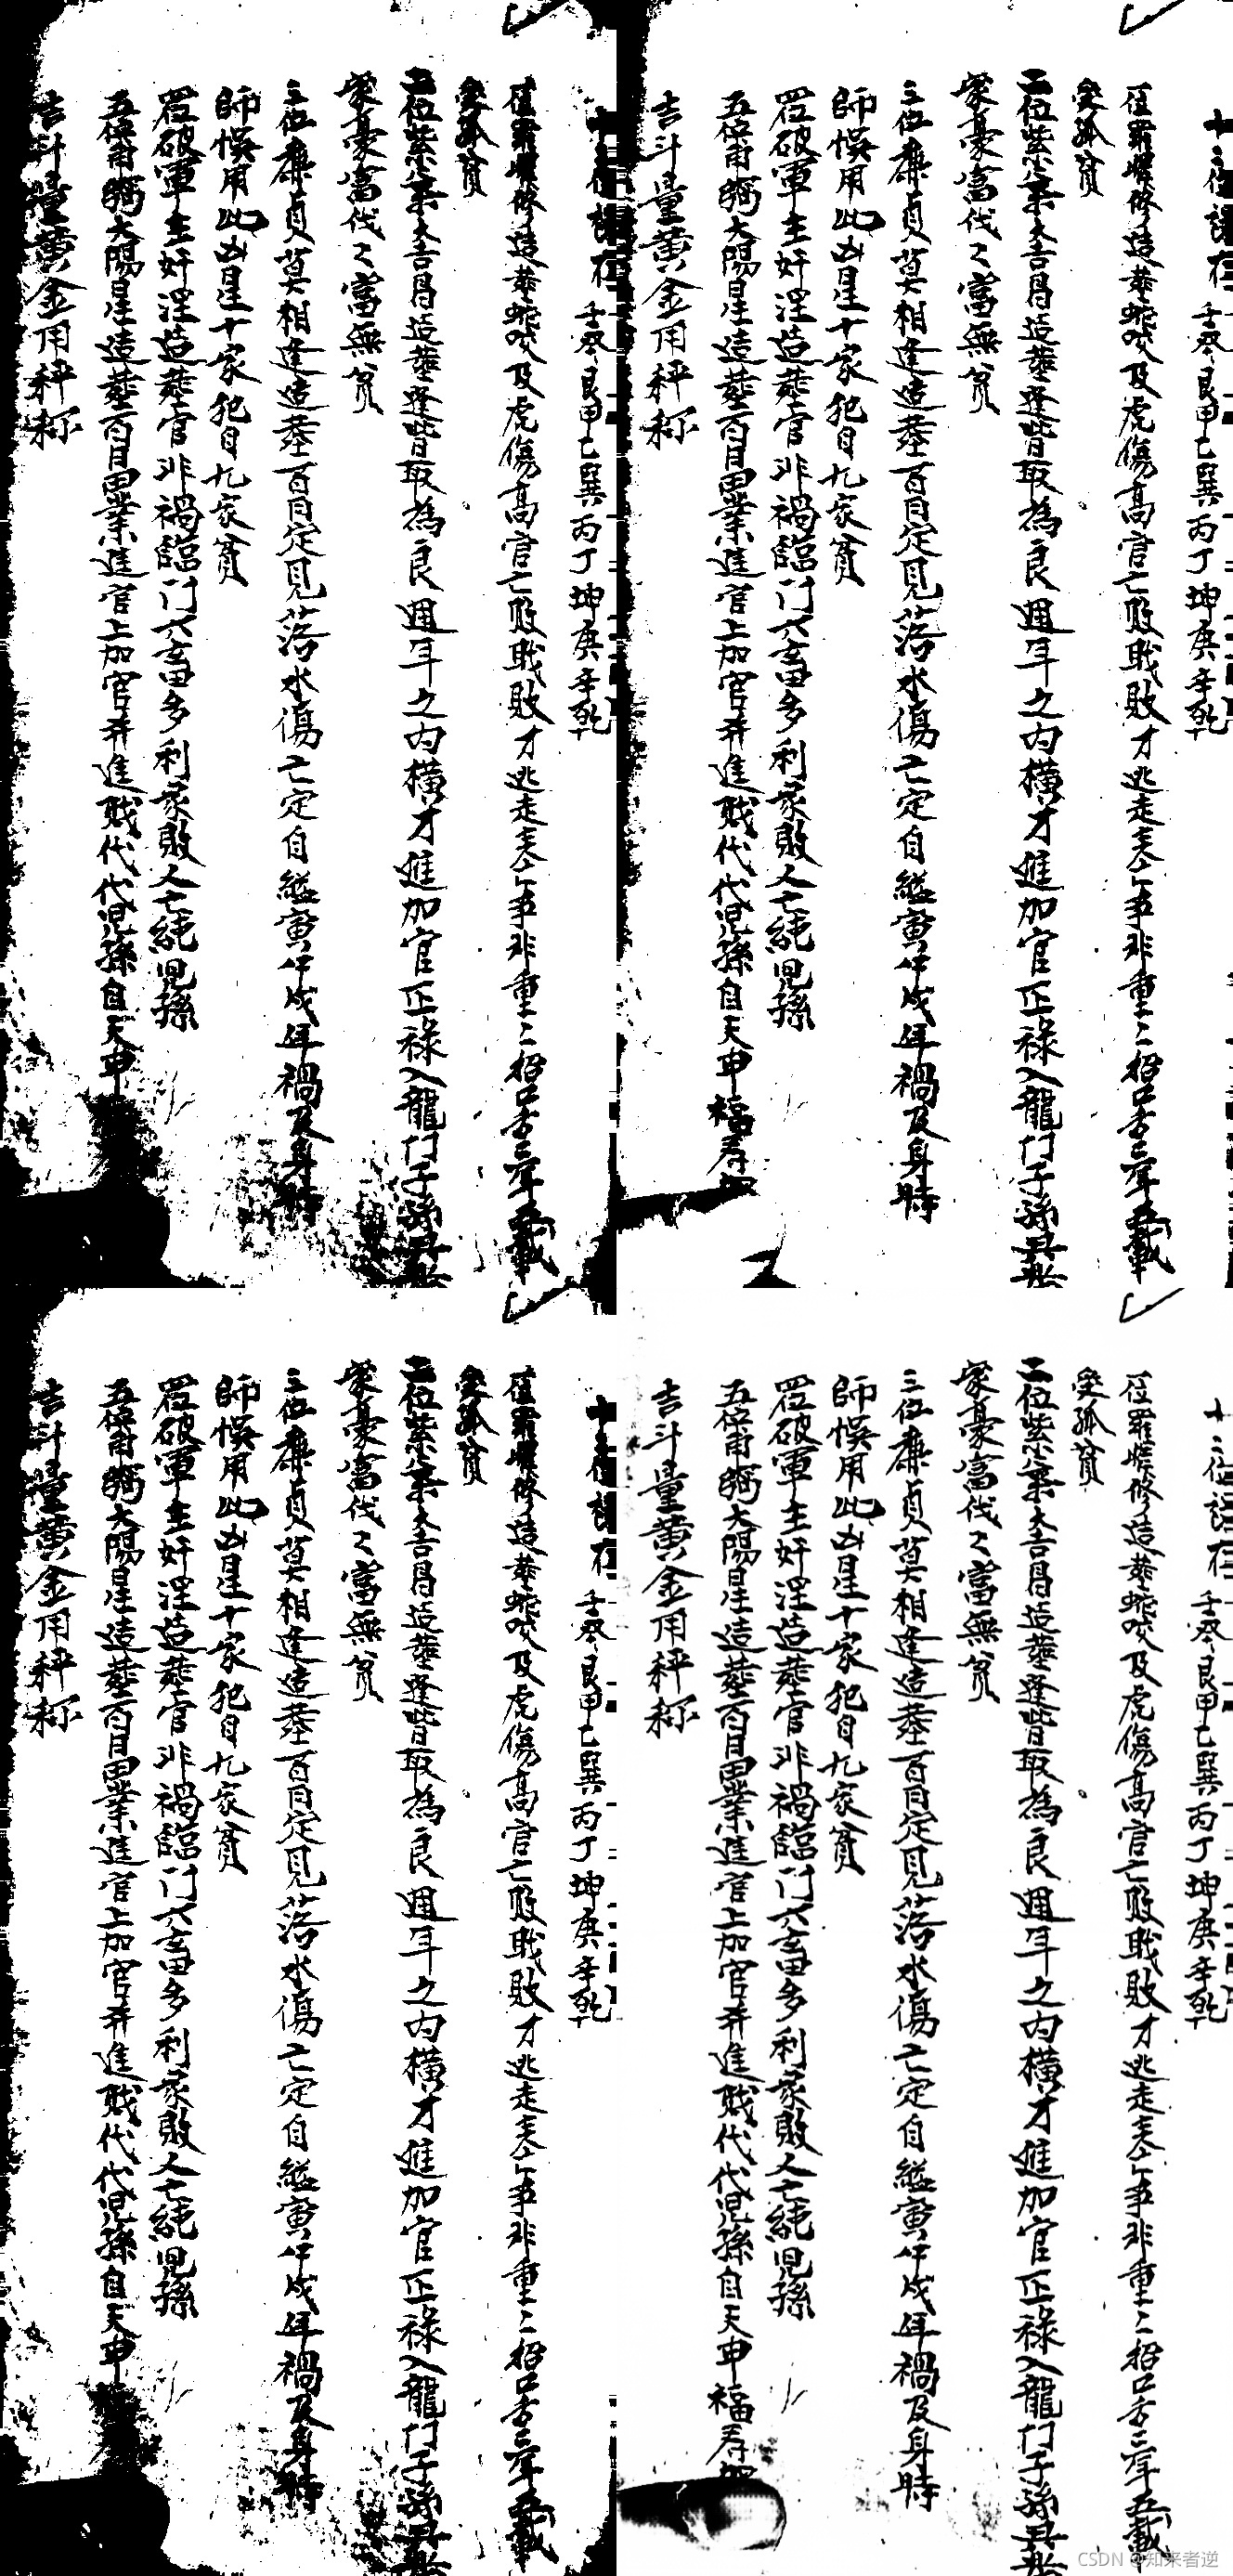 壬癸艮甲乙巽丙丁坤庚辛乾
位羅睺修造葬蛇咬及虎傷高官亡敗戰敗才逃走事非重二招口舌三年五載
受孤貧
二位紫炁大吉昌造葬逢皆取為良週年之内橫才進加官正祿入龍门子孫
家豪富代々富無貧
三位廉貞莫相逢造葬百日定見落水傷亡定自縊寅午戌年禍及身時
師悞用此凶星十家犯自九家貧
位破軍主奸淫造葬官非禍臨门六畜多利家敗人亡絕児孫
五位甫弼太陽星造葬百日田業進官上加官并進財代代児孫自天申福壽
吉斗量黄金用秤称
壬癸艮甲乙巽丙丁坤庚辛乾
位羅睺修造葬蛇咬及虎傷高官亡敗戰敗才逃走事非重二招口舌三年五載
受孤貧
二位紫炁大吉昌造葬逢皆取為良週年之内橫才進加官正祿入龍门子孫
家豪富代々富無貧
三位廉貞莫相逢造葬百日定見落水傷亡定自縊寅午戌年禍及身時
師悞用此凶星十家犯自九家貧
位破軍主奸淫造葬官非禍臨门六畜多利家敗人亡絕児孫
五位甫弼太陽星造葬百日田業進官上加官并進財代代児孫自天申
吉斗量黄金用秤称
壬癸艮甲乙巽丙丁坤庚辛乾
位羅睺修造葬蛇咬及虎傷高官亡敗戰敗才逃走事非重二招口舌三年五載
受孤貧
二位紫炁大吉昌造葬逢皆取為良週年之内橫才進加官正祿入龍门子孫
家豪富代々富無貧
三位廉貞莫相逢造葬百日定見落水傷亡定自縊寅午戌年禍及身時
師悞用此凶星十家犯自九家貧
位破軍主奸淫造葬官非禍臨门六畜多利家敗人亡絕児孫
五位甫弼太陽星造葬百日田業進官上加官并進財代代児孫自天申福壽
吉斗量黄金用秤称
壬癸艮甲乙巽丙丁坤庚辛乾
位羅睺修造葬蛇咬及虎傷高官亡敗戰敗才逃走事非重二招口舌三年五載
受孤貧
二位紫炁大吉昌造葬逢皆取為良週年之内橫才進加官正祿入龍门子孫
家豪富代々富無貧
三位廉貞莫相逢造葬百日定見落水傷亡定自縊寅午戌年禍及身時
師悞用此凶星十家犯自九家貧
位破軍主奸淫造葬官非禍臨门六畜多利家敗人亡絕児孫
五位甫弼太陽星造葬百日田業進官上加官并進財代代児孫自天申
吉斗量黄金用秤称
CSDN @知来者逆